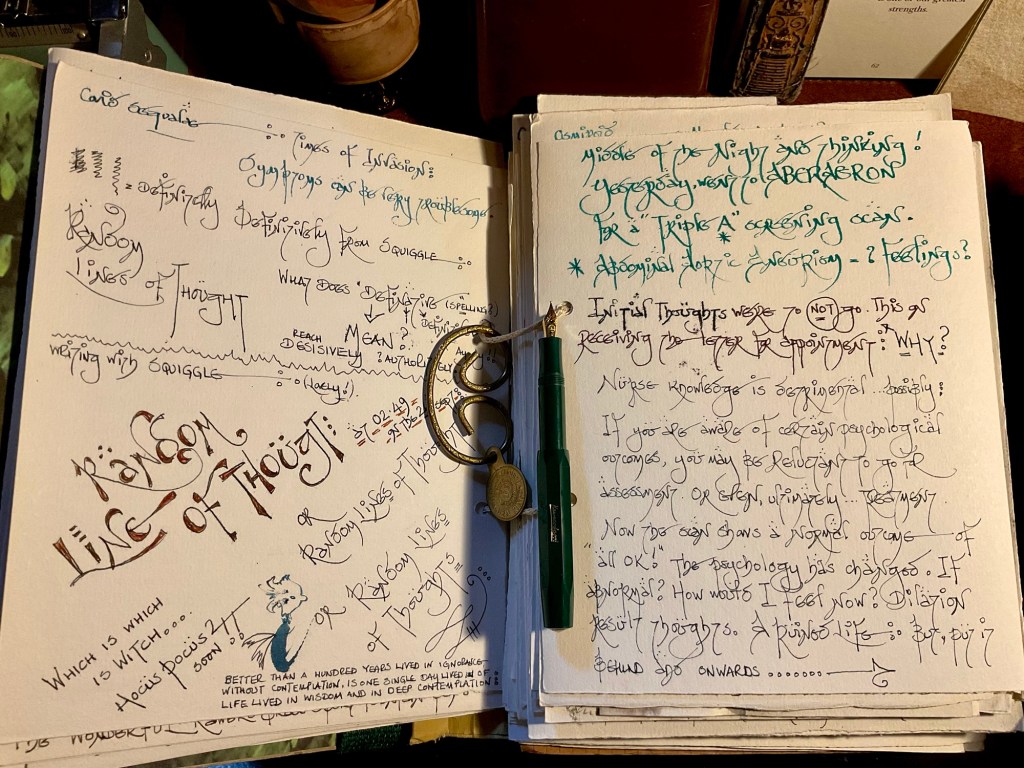 Covid sequalae
Times of Invasion:
Symptoms can be very troublesome.
= Definitely Definitively from squiggle
Random
lines of Thought
What does "Definative (spelling?)
Mean?
reach
desisively?
writing with squiggle (lately!)
at 02.49
Random
Line of Thought:
or
Random Lines of Thought
or Random Lines
of Thoughts
Which is which
is witch...
Hocus Pocus 2
soon!!
Better than a hundred years lived in ignorance
without contemplation, is one single day lived in of
life lived in wisdom and in deep contemplation:
The Wonderful
strengths.
62
Osmiroid
Middle of the Night and thinking!
Yesterday, went to ABERAERON
for a "Triple A" screening scan.
*
* Abdominal Aortic Aneurism = ? Feelings?
Initial Thoughts were to NOT go. This on
receiving the letter for appointment: WHY?
Nurse knowledge is detrimental ... possibly:
If you are aware of certain psychological
outcomes, you may be reluctant to go for
assessment. Or even, ultimately... treatment.
Now the scan shows a normal outcome of
all OK!" The psychology has changed. If
abnormal? How would I feel now? Dilation
result thoughts. A Ruined life: But, put it
behind and onwards ........